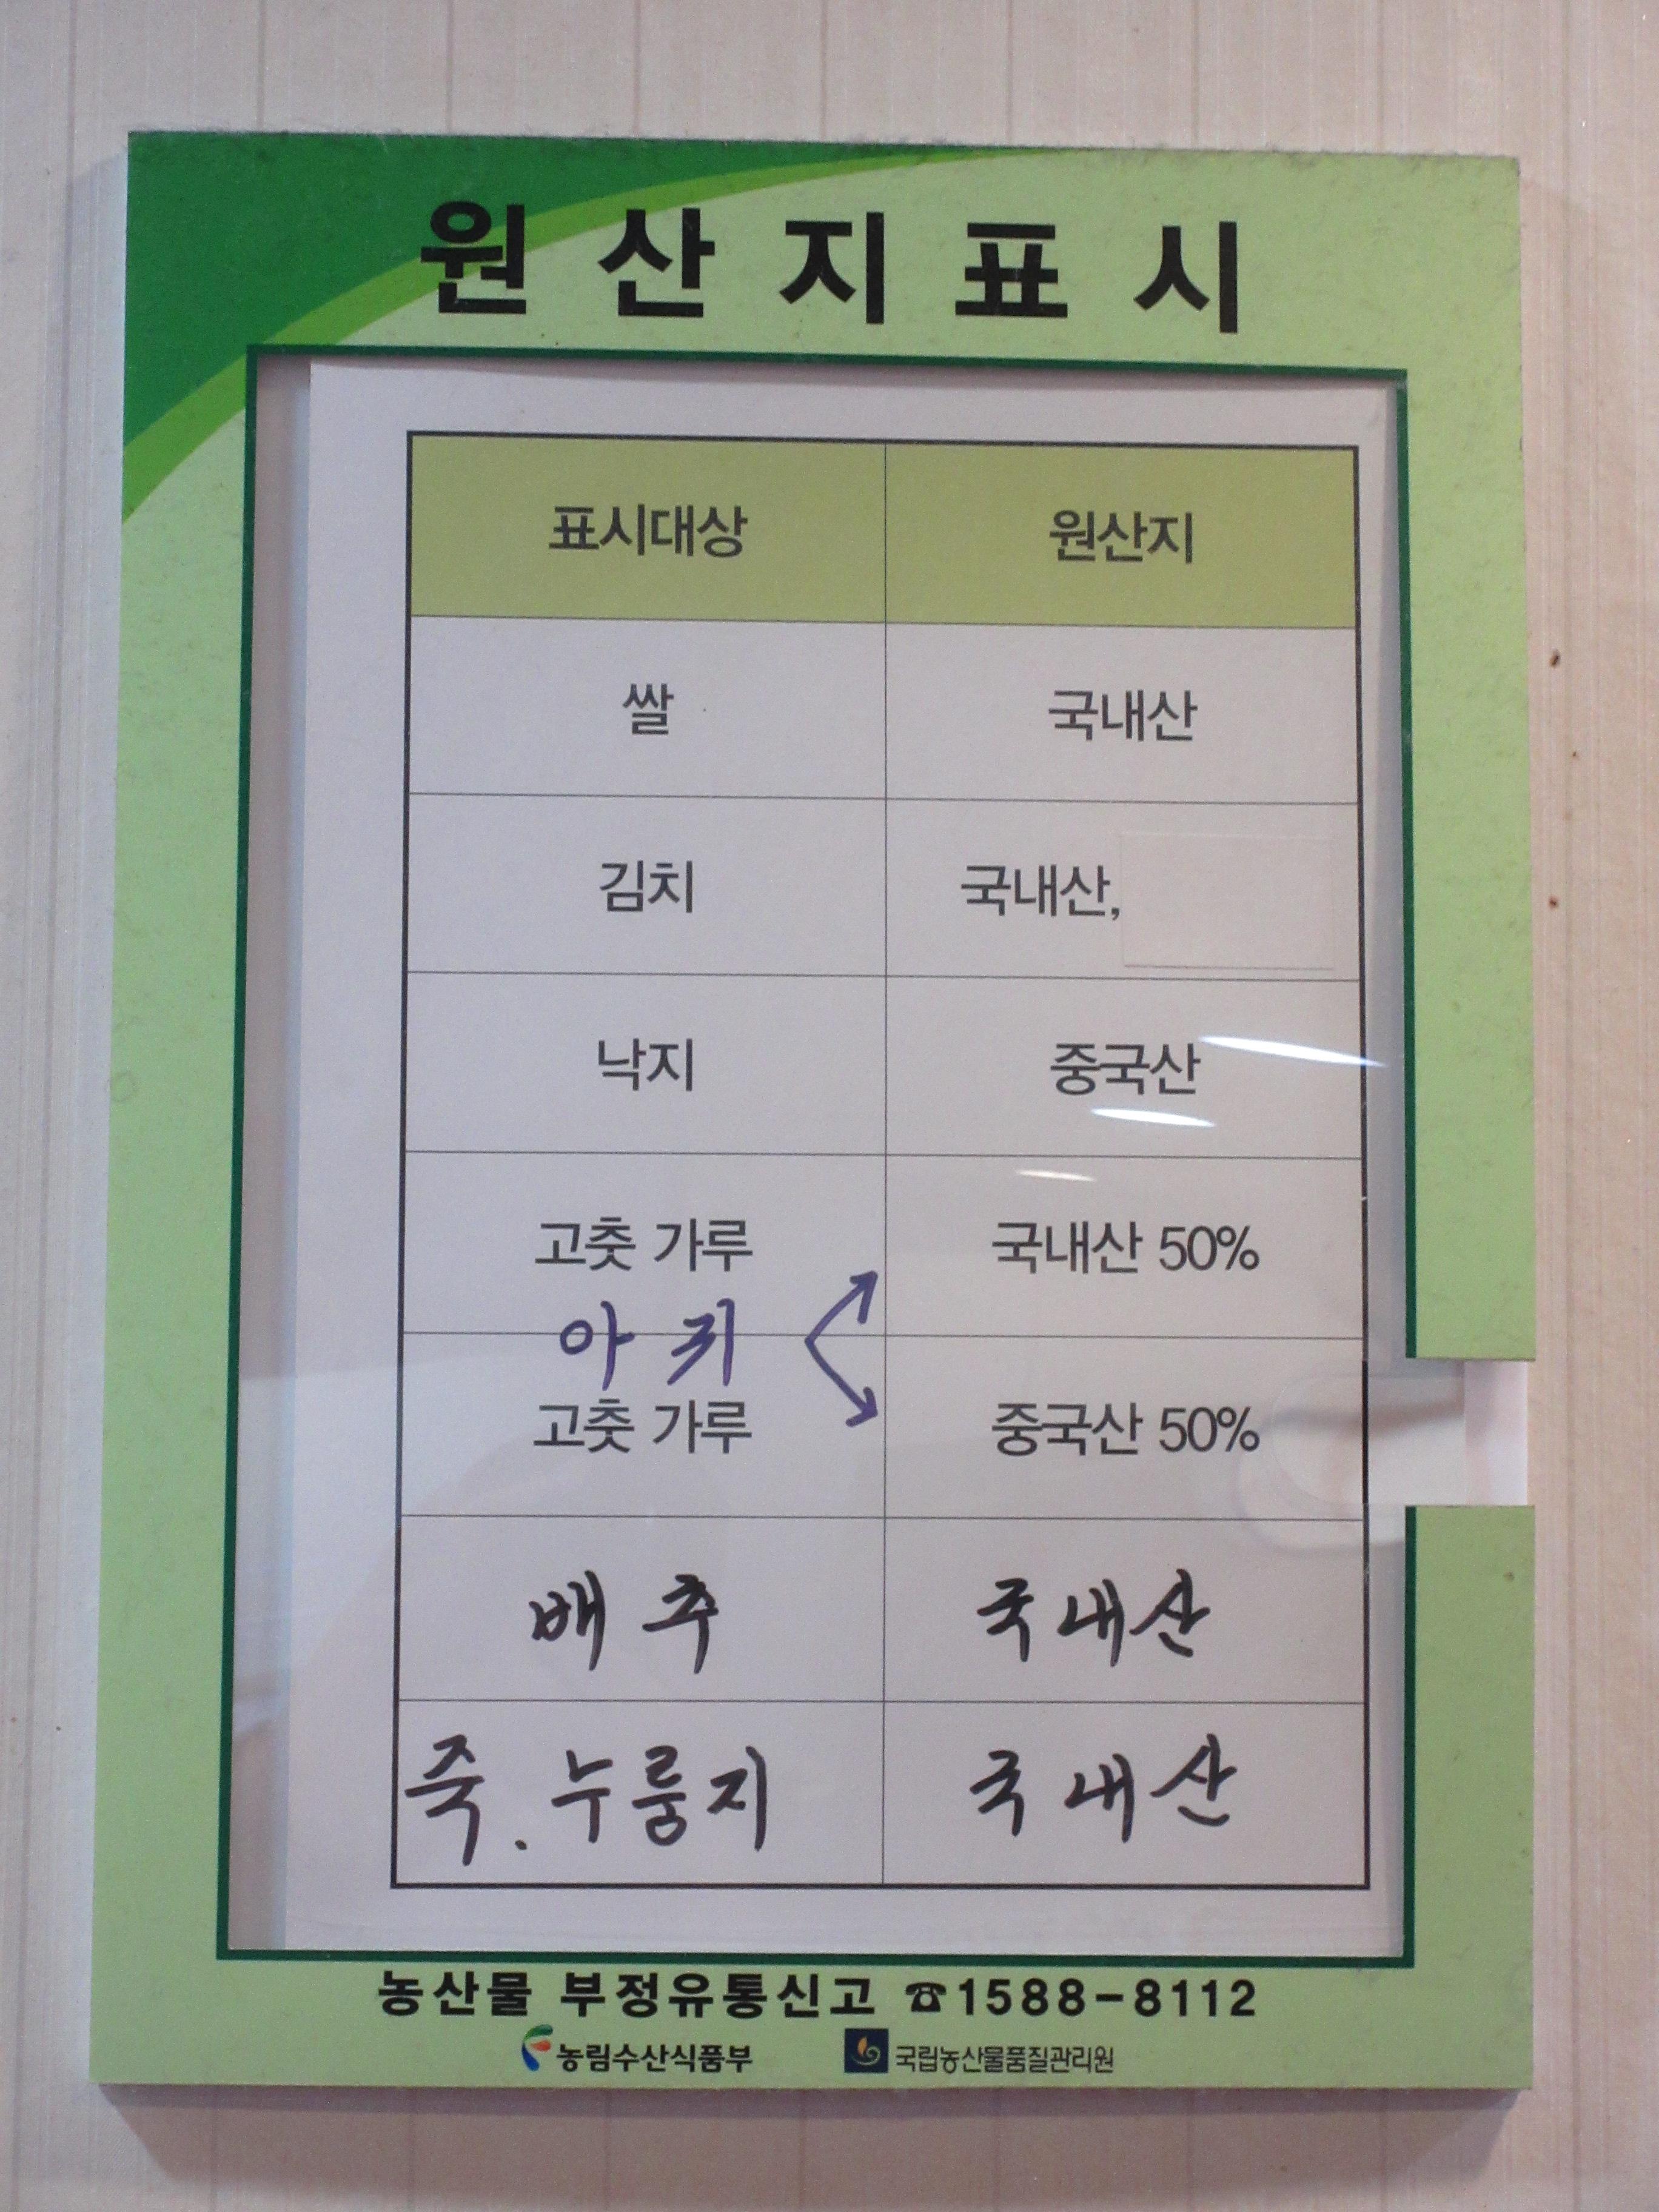 원산지표시
표시대상 원산지
쌀 국내산
김치 국내산,
낙지 중국산
고춧 가루 국내산 50%
아귀
고춧 가루 중국산 50%
배추 국내산
죽. 누룽지 국내산
농산물 부정유통신고 ☎1588-8112
농림수산식품부 국립농산물품질관리원